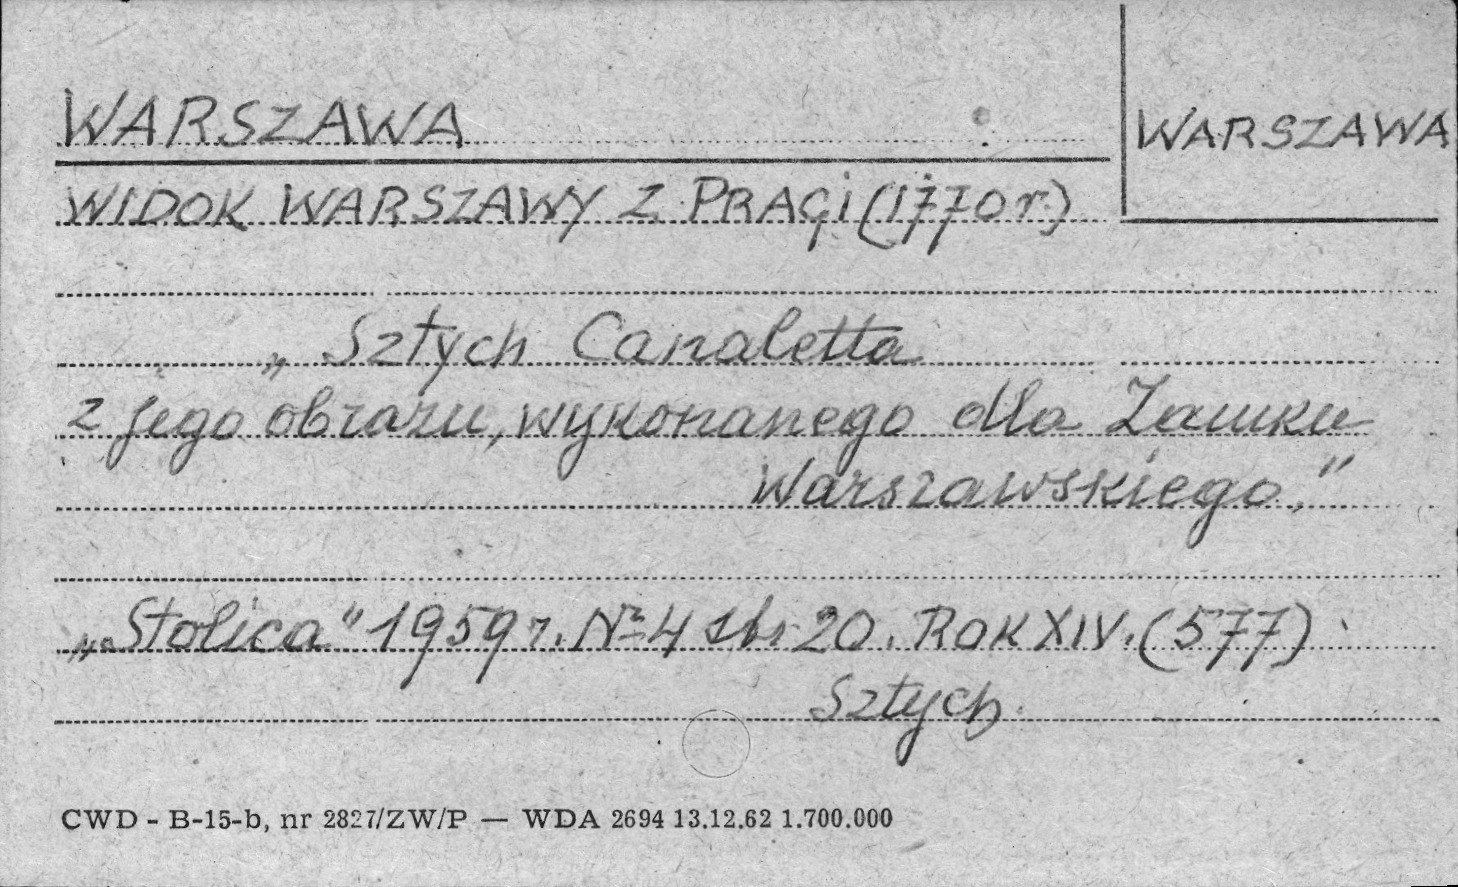 WARSZAWA
WARSZAWA
WIDOK WARSZAWY Z PRAGI (1770 r.)
„Sztych Canaletta
z jego obrazu, wykonanego dla Zamku
Warszawskiego."
„Stolica" 1959 r. Nr 4 str 20. ROK XIV. (577)
Sztych.
CWD - B-15-b, nr 2827/ZW/P — WDA 2694 13.12.62 1.700.000